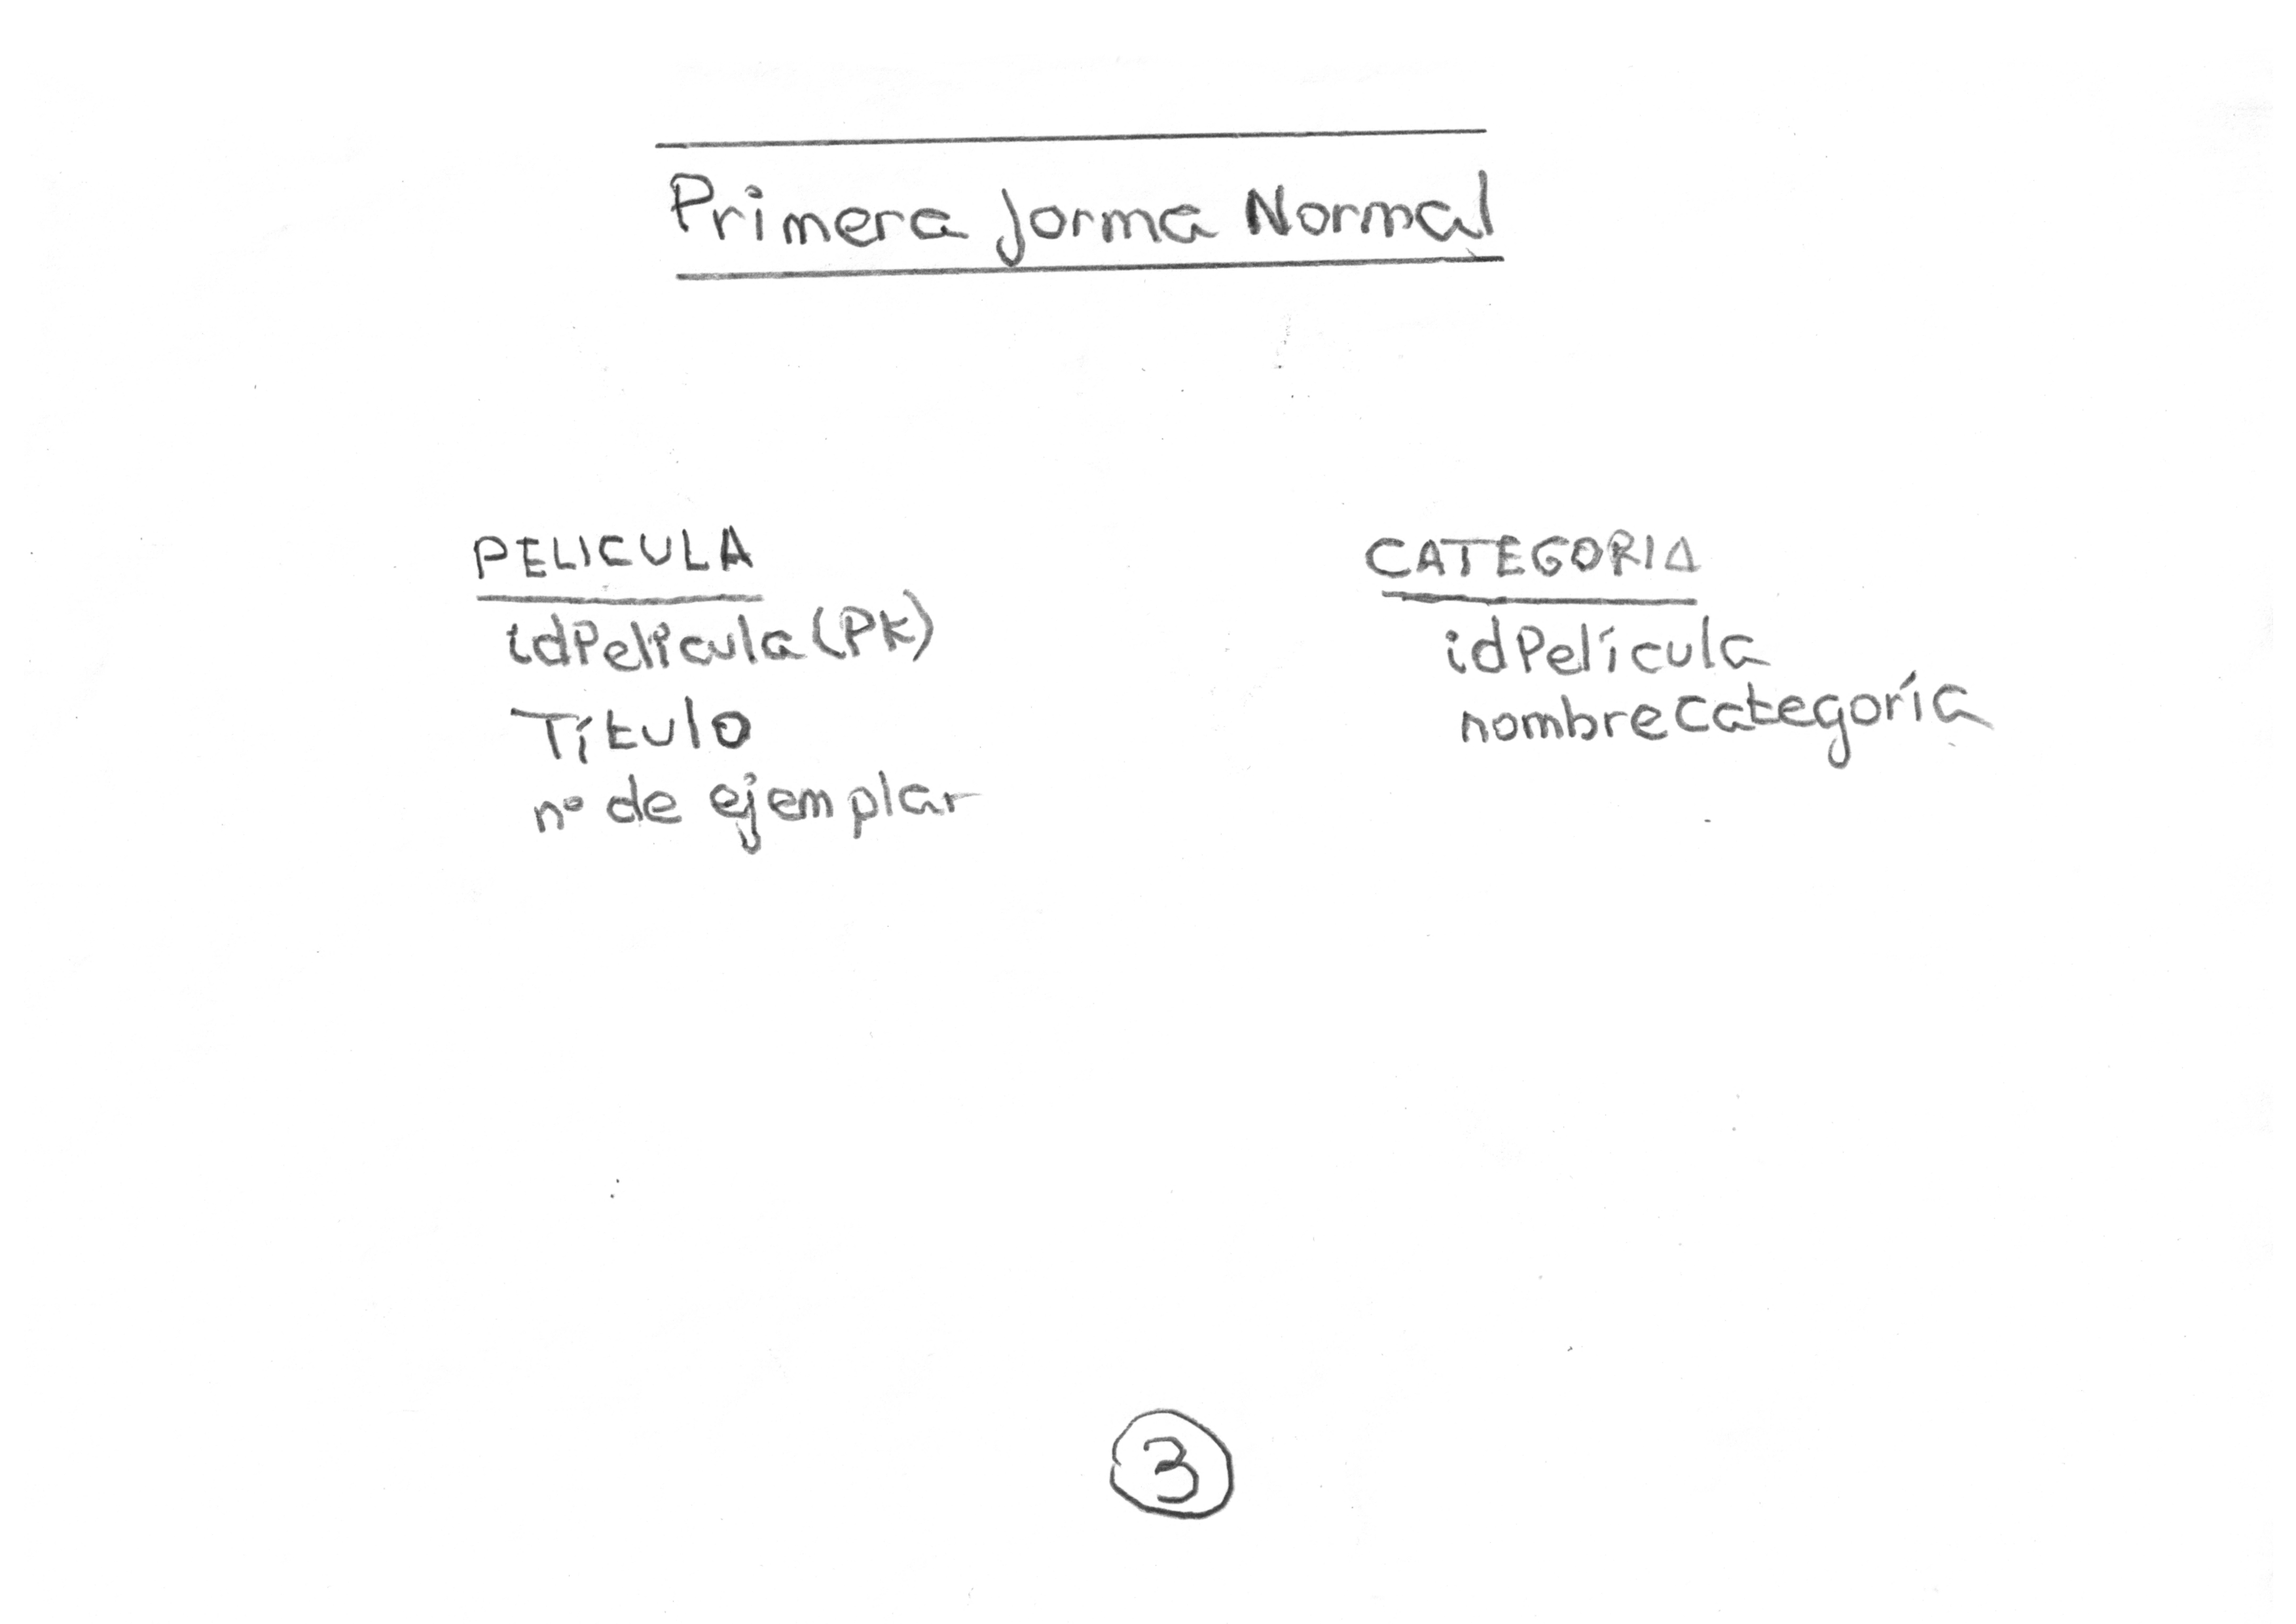 Primera forma Normal
PELICULA
idPelicula (PK)
Título
nº de ejemplar
CATEGORIA
idPelícula
nombrecategoría
3